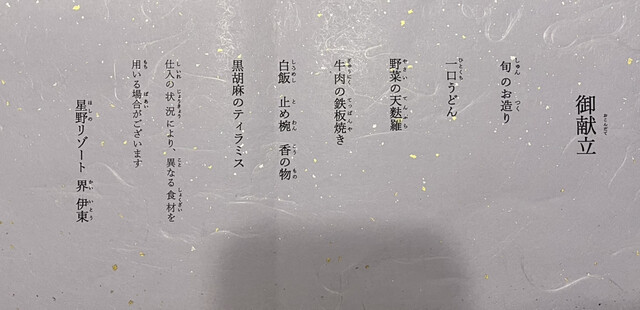 御献立
旬のお造り
一口うどん
野菜の天麩羅
牛肉の鉄板焼き
白飯 止め椀 香の物
黒胡麻のティラミス
仕入の状況により、異なる食材を
用いる場合がございます
星野リゾート 界 伊東